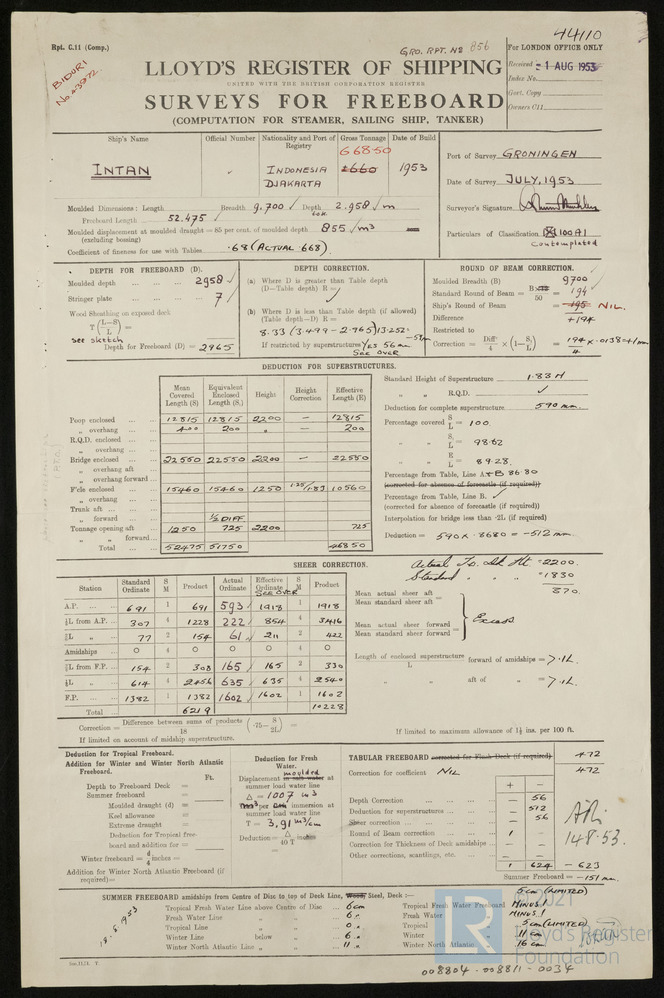 44110
Rpt. C.11 (Comp.)
GRO. RPT. No 856
For LONDON OFFICE ONLY
BIDURI
No. 43972.
LLOYD'S REGISTER OF SHIPPING
UNITED WITH THE BRITISH CORPORATION REGISTER
Received -1 AUG 1953
Index No.
Govt. Copy
Owners C11
SURVEYS FOR FREEBOARD
(COMPUTATION FOR STEAMER, SAILING SHIP, TANKER)
Ship's Name
Official Number
Nationality and Port of Registry
Gross Tonnage
Date of Build
INTAN
INDONESIA
DJAKARTA
668.50
1660
1953
Port of Survey GRONINGEN
Date of Survey JULY, 1953
Surveyor's Signature
Particulars of Classification 100A1
Contemplated
Moulded Dimensions: Length Breadth 9.700 Depth 2.958 m
Freeboard Length 52.475
Moulded displacement at moulded draught = 85 per cent. of moulded depth 855 m³
(excluding bossing)
Coefficient of fineness for use with Tables .68 (ACTUAL .668)
DEPTH FOR FREEBOARD (D).
Moulded depth 2958
Stringer plate 7
Wood Sheathing on exposed deck
T (L-S / L) =
see sketch
Depth for Freeboard (D) = 2965
DEPTH CORRECTION.
(a) Where D is greater than Table depth
(D-Table depth) R =
(b) Where D is less than Table depth (if allowed)
(Table depth-D) R =
8.33 (3.499 - 2.965) 13.252 = -58 m
If restricted by superstructures YES 56 mm
SEE OVER
ROUND OF BEAM CORRECTION.
Moulded Breadth (B) 9700
Standard Round of Beam = B / 50 = 194
Ship's Round of Beam = 195 NIL.
Difference +194
Restricted to
Correction = Diff / 4 × (1 - S / L) = 194 × .0138 = +1 mm
4
DEDUCTION FOR SUPERSTRUCTURES.
Mean Covered Length (S)
Equivalent Enclosed Length (S₁)
Height
Height Correction
Effective Length (E)
Poop enclosed 12815 12815 2200 - 12815
„ overhang 400 200 „ - 200
R.Q.D. enclosed
„ overhang
Bridge enclosed 22550 22550 2200 - 22550
„ overhang aft
„ overhang forward
F'cle enclosed 15460 15460 1250 1.25/1.83 10560
„ overhang
Trunk aft
„ forward ½ DIFF
Tonnage opening aft 1250 725 2200 725
„ „ forward
Total 52475 51750 46850
Standard Height of Superstructure 1.83 M
„ „ R.Q.D.
Deduction for complete superstructure 590 mm.
Percentage covered S / L = 100.
„ „ S₁ / L = 98.62
„ „ E / L = 89.28.
Percentage from Table, Line A + B 86.80
(corrected for absence of forecastle (if required))
Percentage from Table, Line B.
(corrected for absence of forecastle (if required))
Interpolation for bridge less than ·2L (if required)
Deduction = 590 × .8680 = -512 mm.
SHEER CORRECTION.
Station
Standard Ordinate
S M
Product
Actual Ordinate
Effective Ordinate
SEE OVER
S M
Product
A.P. 691 1 691 593 1918 1 1918
⅙L from A.P. 307 4 1228 222 854 4 3416
⅓L „ 77 2 154 61 211 2 422
Amidships 0 4 0 0 0 4 0
⅓L from F.P. 154 2 308 165 165 2 330
⅙L „ 614 4 2456 635 635 4 2540
F.P. 1382 1 1382 1602 1602 1 1602
Total 6219 10228
Actual To. dk Ht = 2200.
Standard „ „ = 1830
370.
Mean actual sheer aft
Mean standard sheer aft =
Mean actual sheer forward
Mean standard sheer forward =
Excess
Length of enclosed superstructure / L forward of amidships = >.1L.
„ „ aft of „ = >.1L.
Correction = Difference between sums of products / 18 (·75 - S / 2L) =
If limited on account of midship superstructure.
If limited to maximum allowance of 1½ ins. per 100 ft.
Deduction for Tropical Freeboard.
Addition for Winter and Winter North Atlantic Freeboard.
Ft.
Depth to Freeboard Deck =
Summer freeboard =
Moulded draught (d) =
Keel allowance =
Extreme draught =
Deduction for Tropical freeboard and addition for =
Winter freeboard = d / 4 inches =
Addition for Winter North Atlantic Freeboard (if required) =
Deduction for Fresh Water.
Displacement moulded in salt water at summer load water line
Δ = 1007 m3
Tons per cm immersion at summer load water line
T = 3.91 m³/cm
Deduction = Δ / 40 T inches
=
TABULAR FREEBOARD corrected for Flush Deck (if required) 472
Correction for coefficient NIL 472
+ -
Depth Correction - 56
Deduction for superstructures - 512
Sheer correction - 56
Round of Beam correction 1 -
Correction for Thickness of Deck amidships - -
Other corrections, scantlings, etc. - -
1 624 -623
Summer Freeboard = -151 mm.
14.8.53.
SUMMER FREEBOARD amidships from Centre of Disc to top of Deck Line, Wood, Steel, Deck :—
5 cm (LIMITED)
Tropical Fresh Water Line above Centre of Disc 6 cm
Fresh Water Line „ „ 6 „
Tropical Line „ „ 0 „
Winter Line below „ 6 „
Winter North Atlantic Line „ „ 11 „
Tropical Fresh Water Freeboard MINUS 1
Fresh Water „ MINUS 1
Tropical „ 5 cm (LIMITED)
Winter „ 11 cm
Winter North Atlantic „ 16 cm
18.8.1953
©2021
Lloyd's Register
Foundation
008804-008811-0034